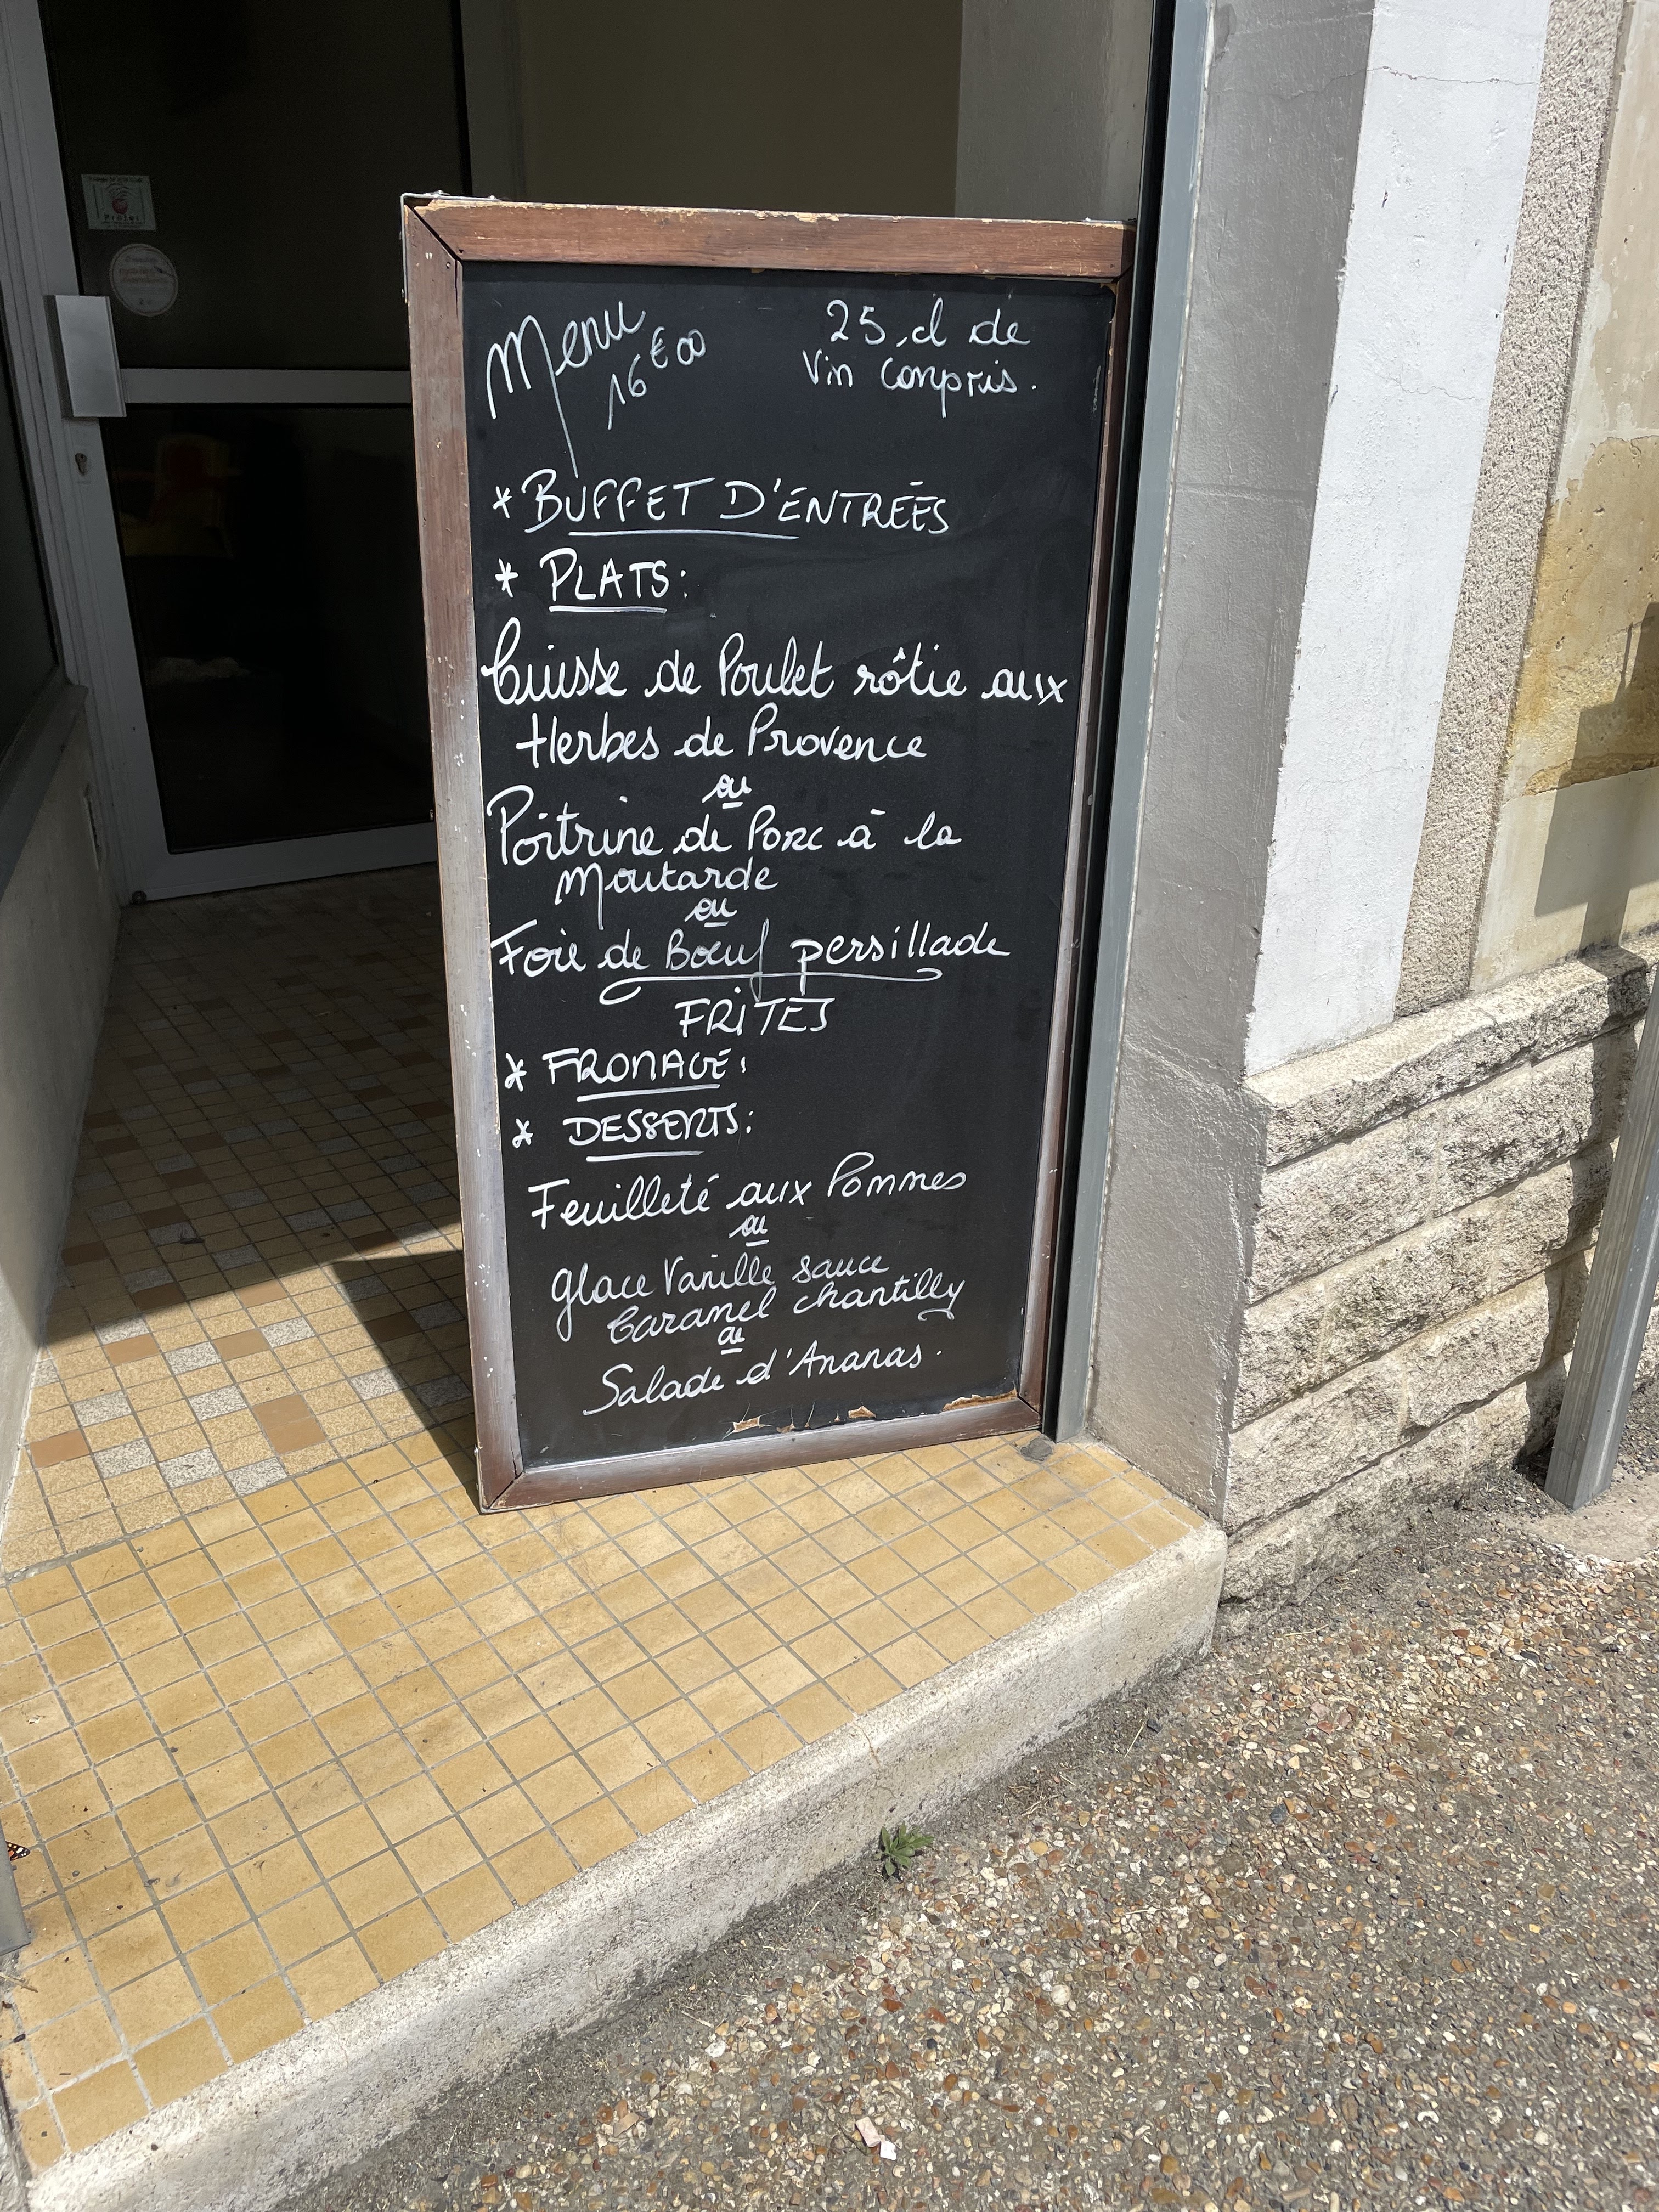 Menu
16€00
25 cl de
Vin compris.
* BUFFET D'ENTRÉES
* PLATS:
Cuisse de Poulet rôtie aux
Herbes de Provence
ou
Poitrine de Porc à la
Moutarde
ou
Foie de Boeuf persillade
FRITES
* FROMAGE:
* DESSERTS:
Feuilleté aux Pommes
ou
Glace Vanille sauce
Caramel chantilly
ou
Salade d'Ananas.